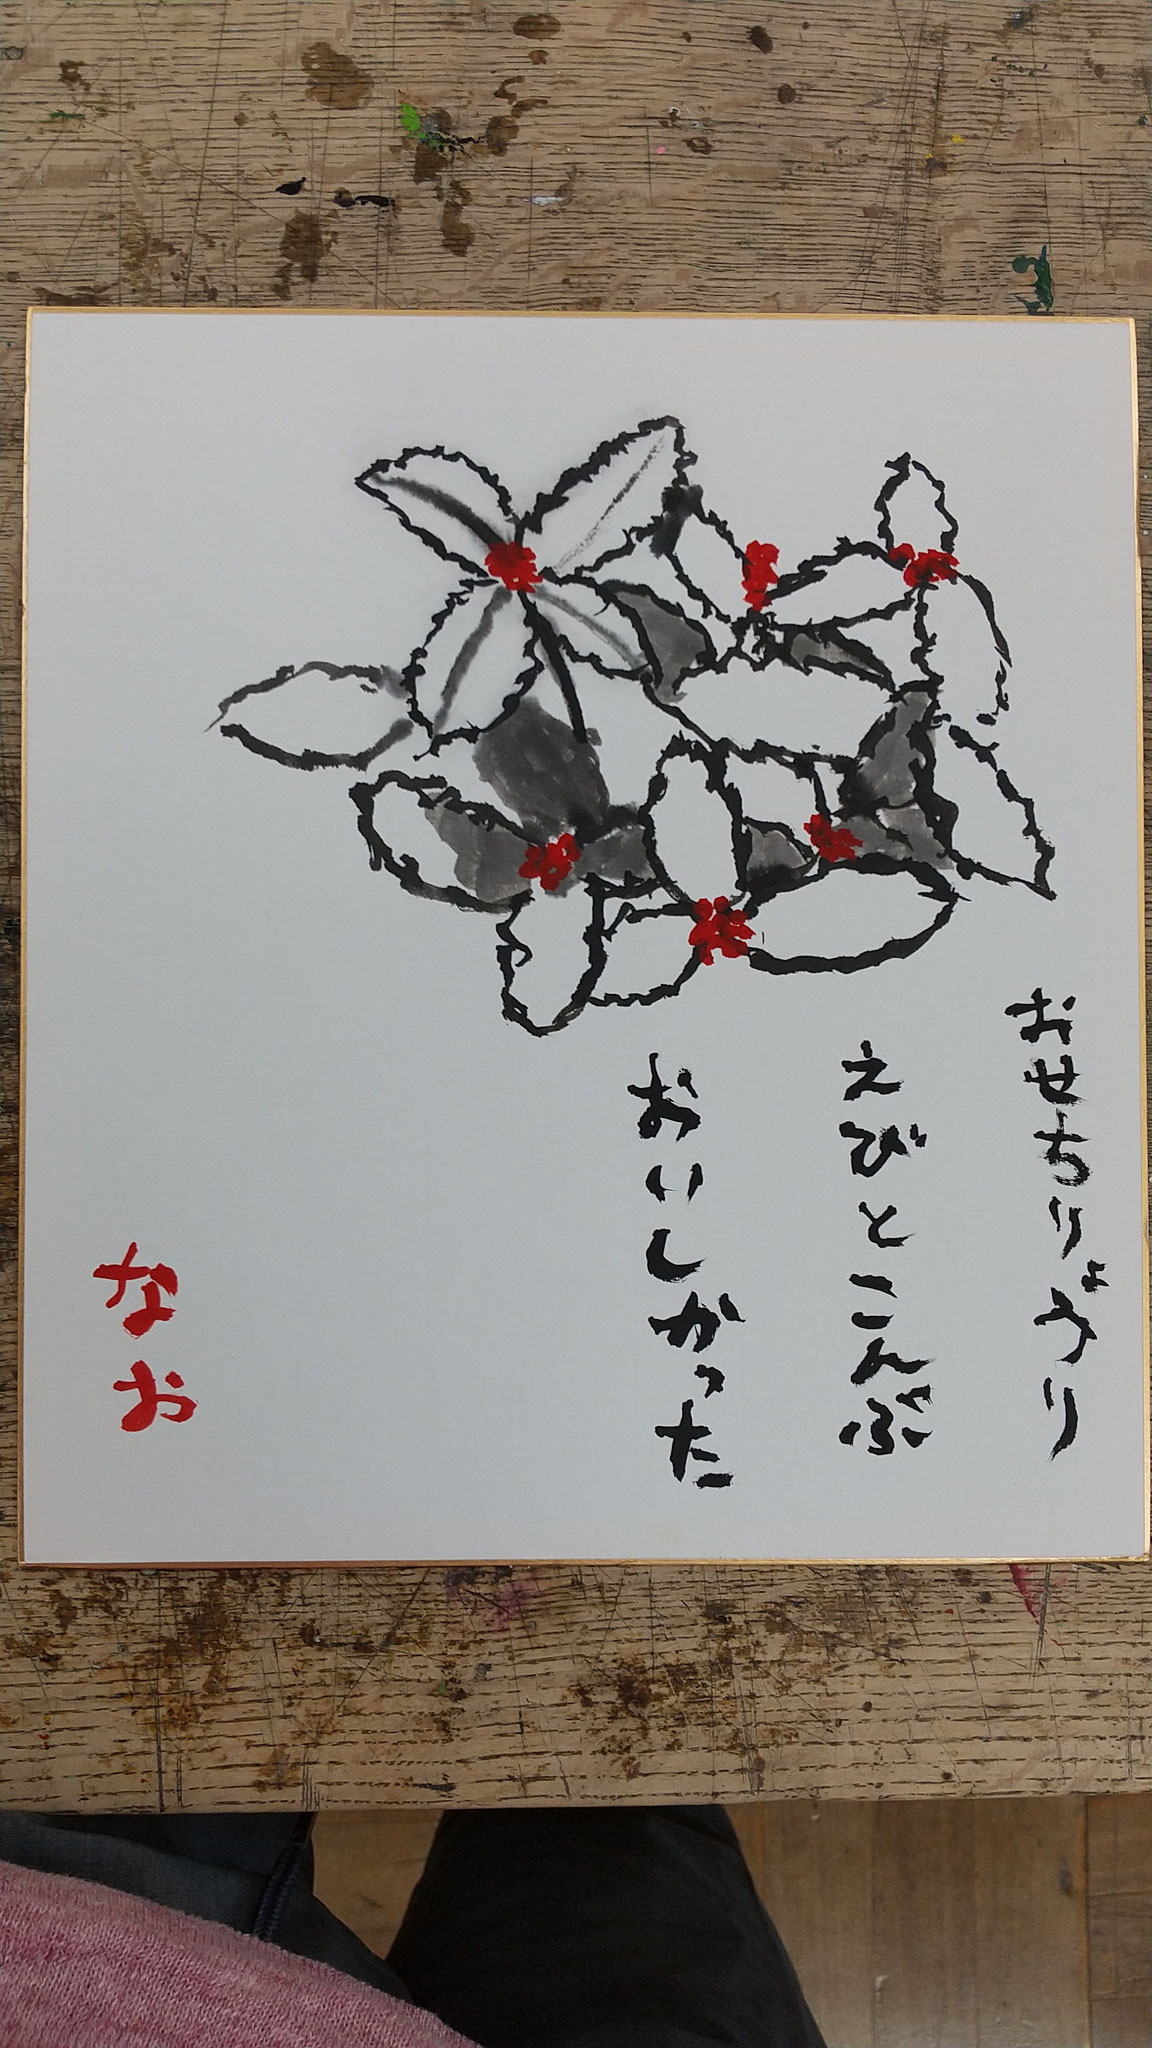 おせちりょうり
えびとこんぶ
おいしかった
なお